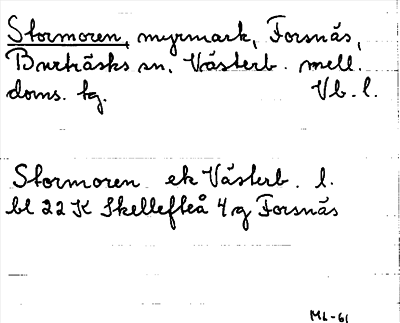 Stormoren, myrmark, Forsnäs,
Burträsks sn. Västerb. mell.
doms. tg. Vb. l.
Stormoren ek Västerb. l.
bl 22 K Skellefteå 4 g Forsnäs
ML-61